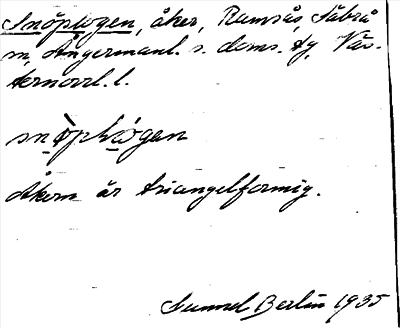 Snöpkogen, åker, Ramsås, Säbrå
sn, Ångermanl. s. doms. tg, Väs-
ternorrl. l.
snöpkogen
Åkern är triangelformig.
Gunnel Berlin 1935